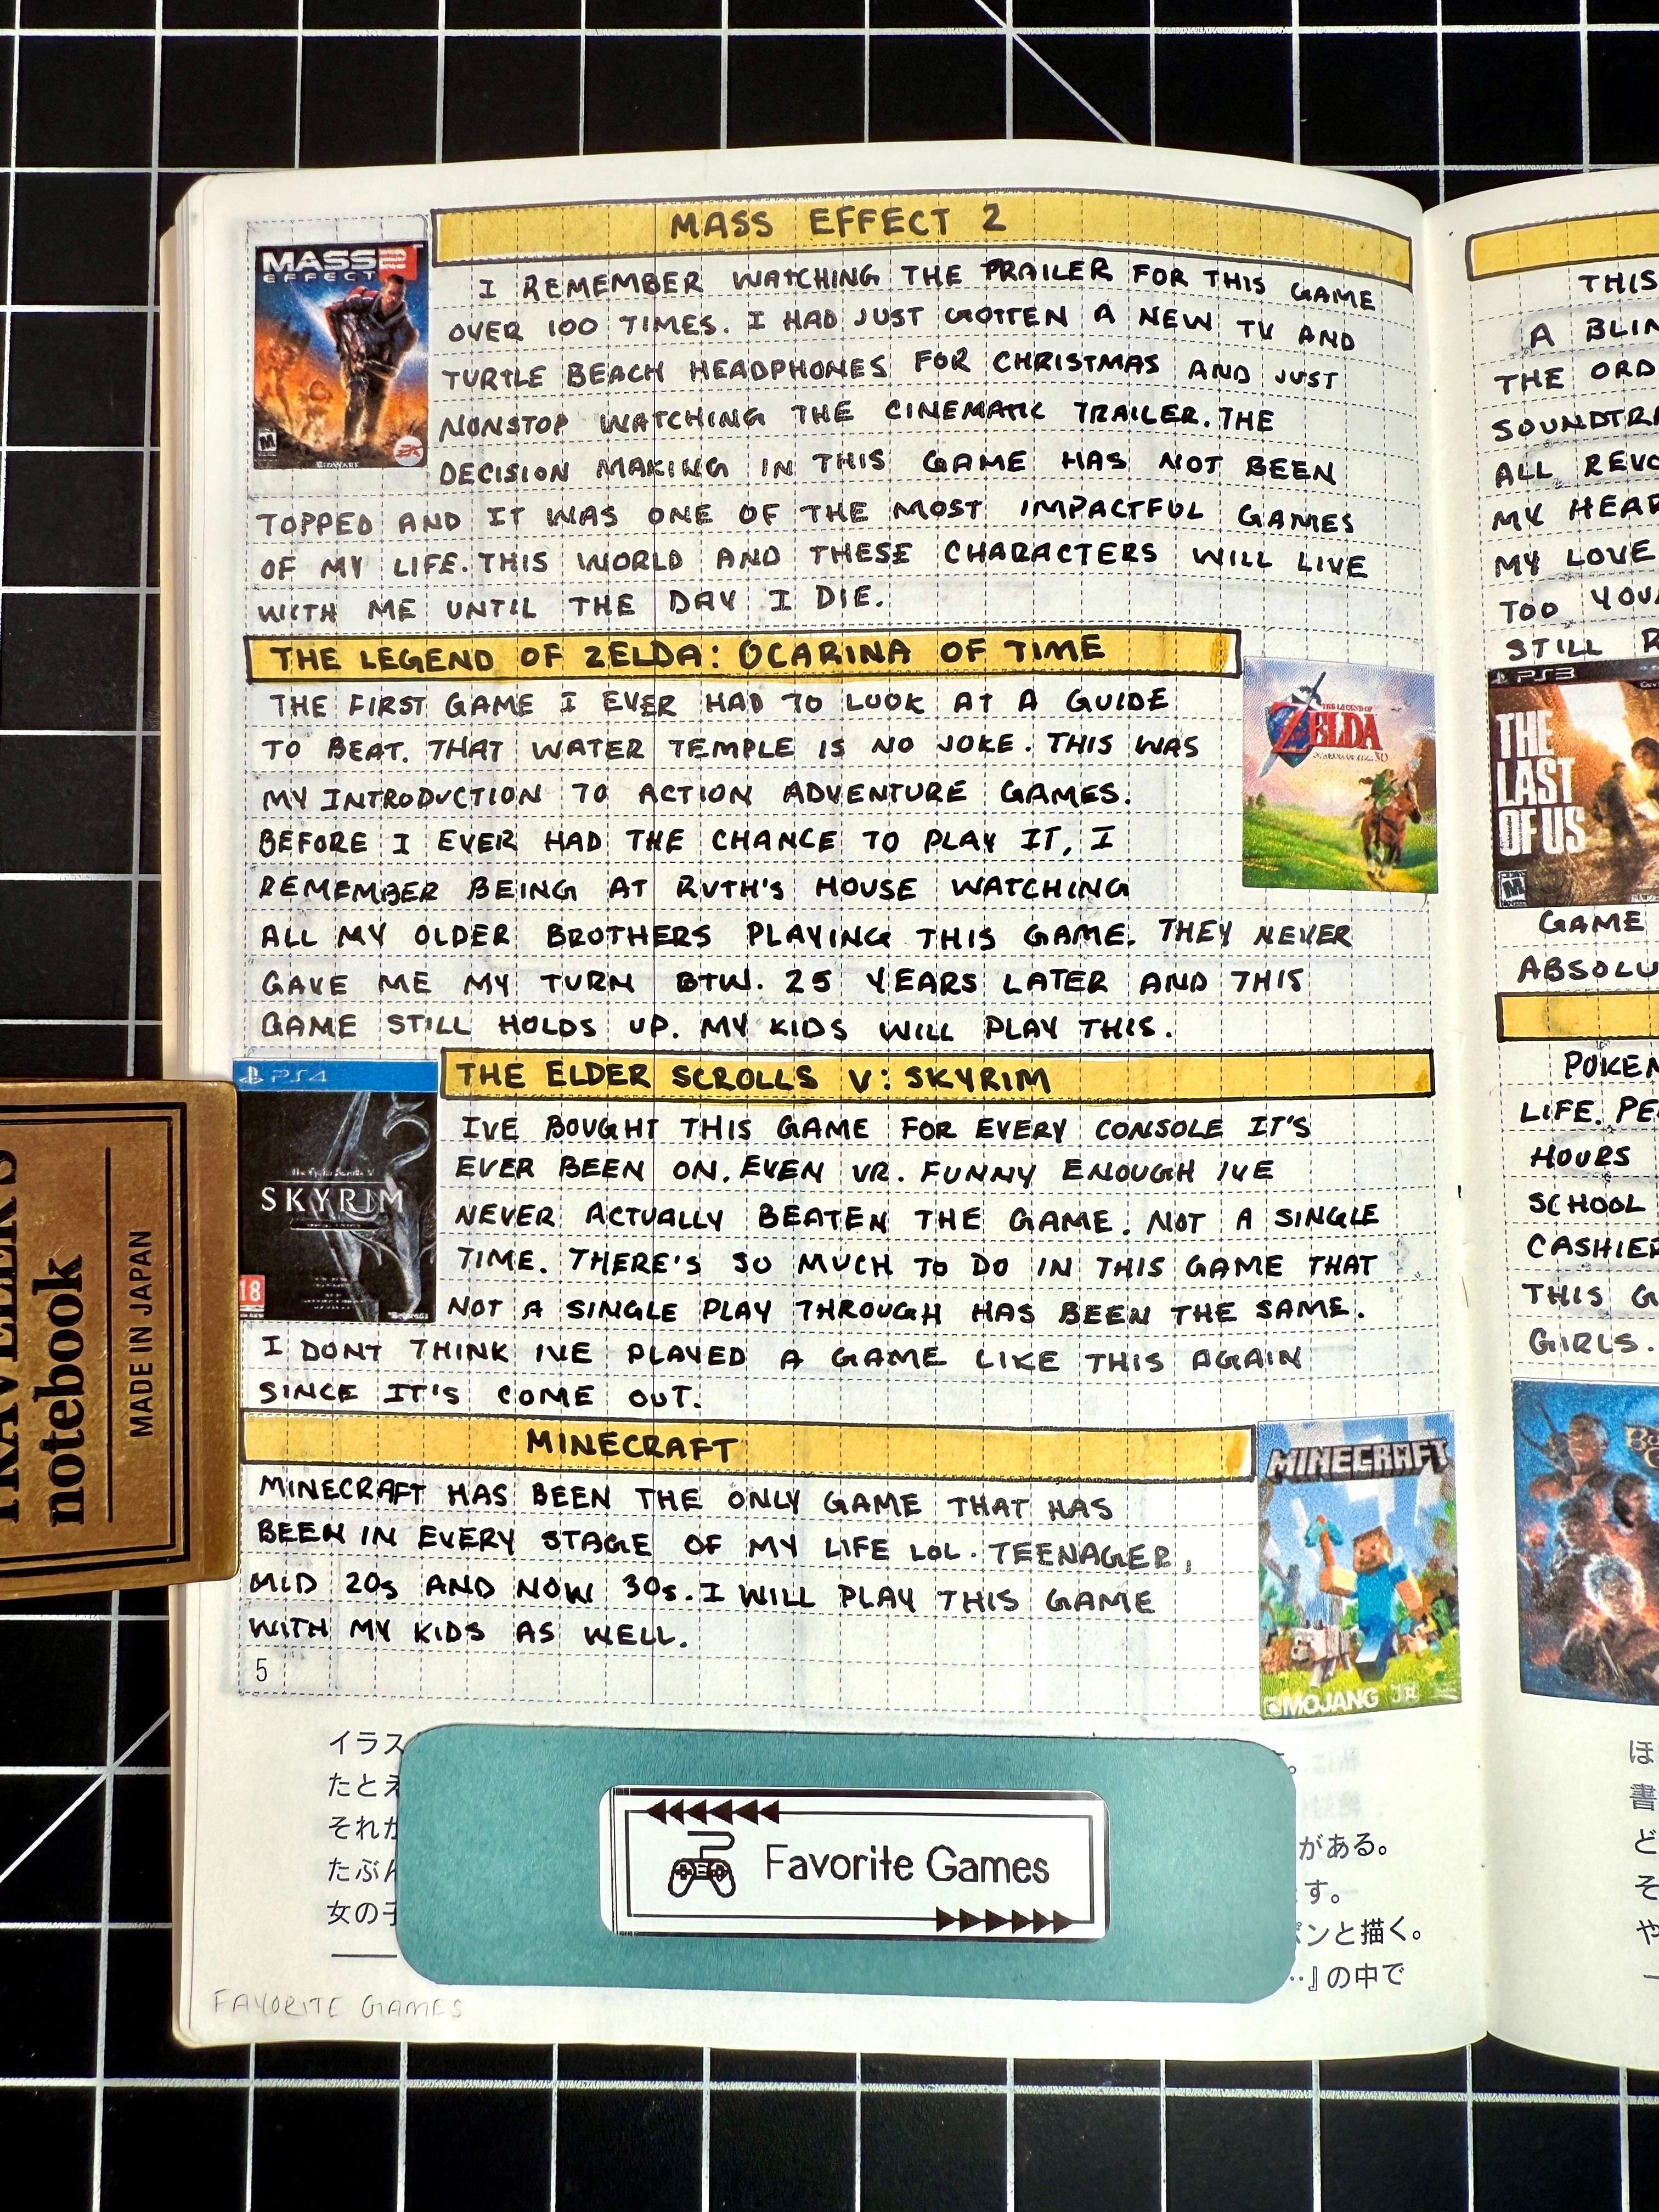 MASS EFFECT 2
MASS 2
EFFECT
M
BIOWARE
EA
I REMEMBER WATCHING THE TRAILER FOR THIS GAME
OVER 100 TIMES. I HAD JUST GOTTEN A NEW TV AND
TURTLE BEACH HEADPHONES FOR CHRISTMAS AND JUST
NONSTOP WATCHING THE CINEMATIC TRAILER. THE
DECISION MAKING IN THIS GAME HAS NOT BEEN
TOPPED AND IT WAS ONE OF THE MOST IMPACTFUL GAMES
OF MY LIFE. THIS WORLD AND THESE CHARACTERS WILL LIVE
WITH ME UNTIL THE DAY I DIE.
THE LEGEND OF ZELDA: OCARINA OF TIME
THE FIRST GAME I EVER HAD TO LOOK AT A GUIDE
TO BEAT. THAT WATER TEMPLE IS NO JOKE. THIS WAS
MY INTRODUCTION TO ACTION ADVENTURE GAMES.
BEFORE I EVER HAD THE CHANCE TO PLAY IT, I
REMEMBER BEING AT RUTH'S HOUSE WATCHING
ALL MY OLDER BROTHERS PLAYING THIS GAME. THEY NEVER
GAVE ME MY TURN BTW. 25 YEARS LATER AND THIS
GAME STILL HOLDS UP. MY KIDS WILL PLAY THIS.
THE LEGEND OF
ZELDA
OCARINA OF TIME 3D
THE ELDER SCROLLS V: SKYRIM
PS4
The Elder Scrolls V
SKYRIM
18
I'VE BOUGHT THIS GAME FOR EVERY CONSOLE IT'S
EVER BEEN ON. EVEN VR. FUNNY ENOUGH IVE
NEVER ACTUALLY BEATEN THE GAME. NOT A SINGLE
TIME. THERE'S SO MUCH TO DO IN THIS GAME THAT
NOT A SINGLE PLAY THROUGH HAS BEEN THE SAME.
I DONT THINK IVE PLAYED A GAME LIKE THIS AGAIN
SINCE IT'S COME OUT.
MINECRAFT
MINECRAFT HAS BEEN THE ONLY GAME THAT HAS
BEEN IN EVERY STAGE OF MY LIFE LOL. TEENAGER,
MID 20s AND NOW 30s. I WILL PLAY THIS GAME
WITH MY KIDS AS WELL.
5
MINECRAFT
MOJANG
イラス
たとえ
それか
たぶん
女の子
。
がある。
す。
ンと描く。
…』の中で
Favorite Games
FAVORITE GAMES
TRAVELER'S
notebook
MADE IN JAPAN
THIS
A BLIN
THE ORD
SOUNDTRA
ALL REVO
MY HEAR
MY LOVE
TOO YOU
STILL R
PS3
THE
LAST
OF US
M
GAME
ABSOLU
POKEM
LIFE. PE
HOURS
SCHOOL
CASHIER
THIS G
GIRLS.
ほ
書
ど
そ
や